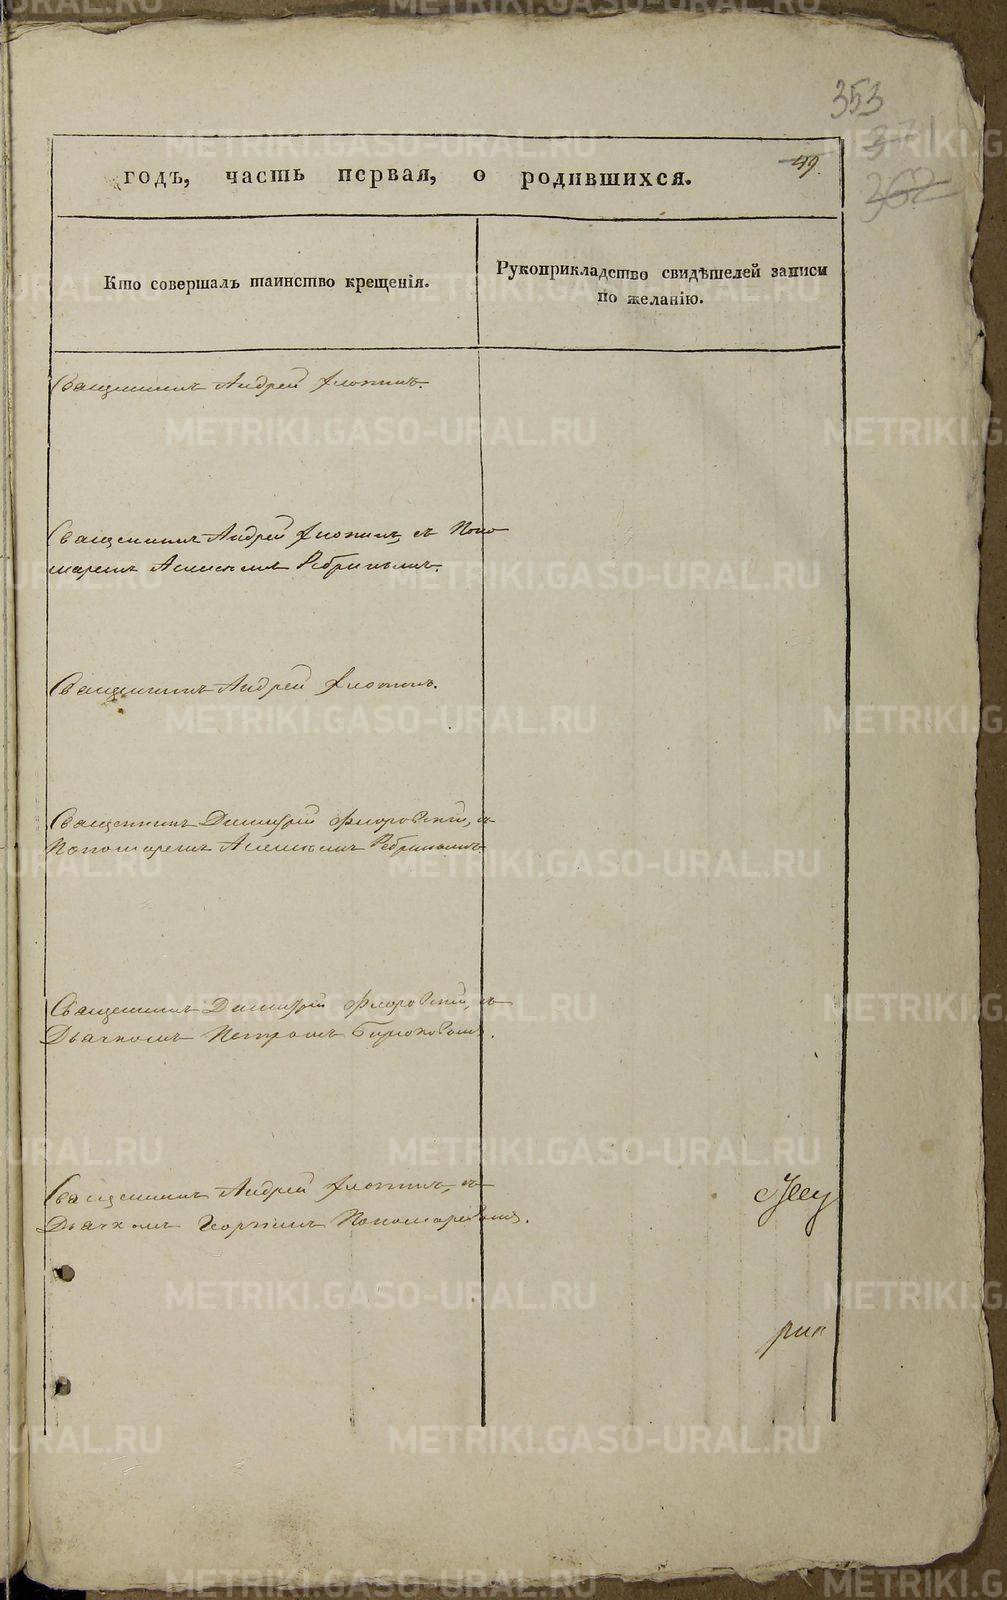 353
49.
362
годъ, часть первая, о родившихся.
Кто совершалъ таинство крещенія.
Рукоприкладство свидѣтелей записи
по желанію.
Священникъ Андрей
Священникъ Андрей съ Поно
маремъ Алексѣемъ Ребринымъ.
Священникъ Андрей
Священникъ Димитрій Флоровскій, съ
Пономаремъ Алексѣемъ Ребринымъ
Священникъ Димитрій Флоровскій, съ
Дьячкомъ Петромъ Бирюковымъ.
Священникъ Андрей съ
Дьячкомъ Георгіемъ Пономаревымъ.
METRIKI.GASO-URAL.RU